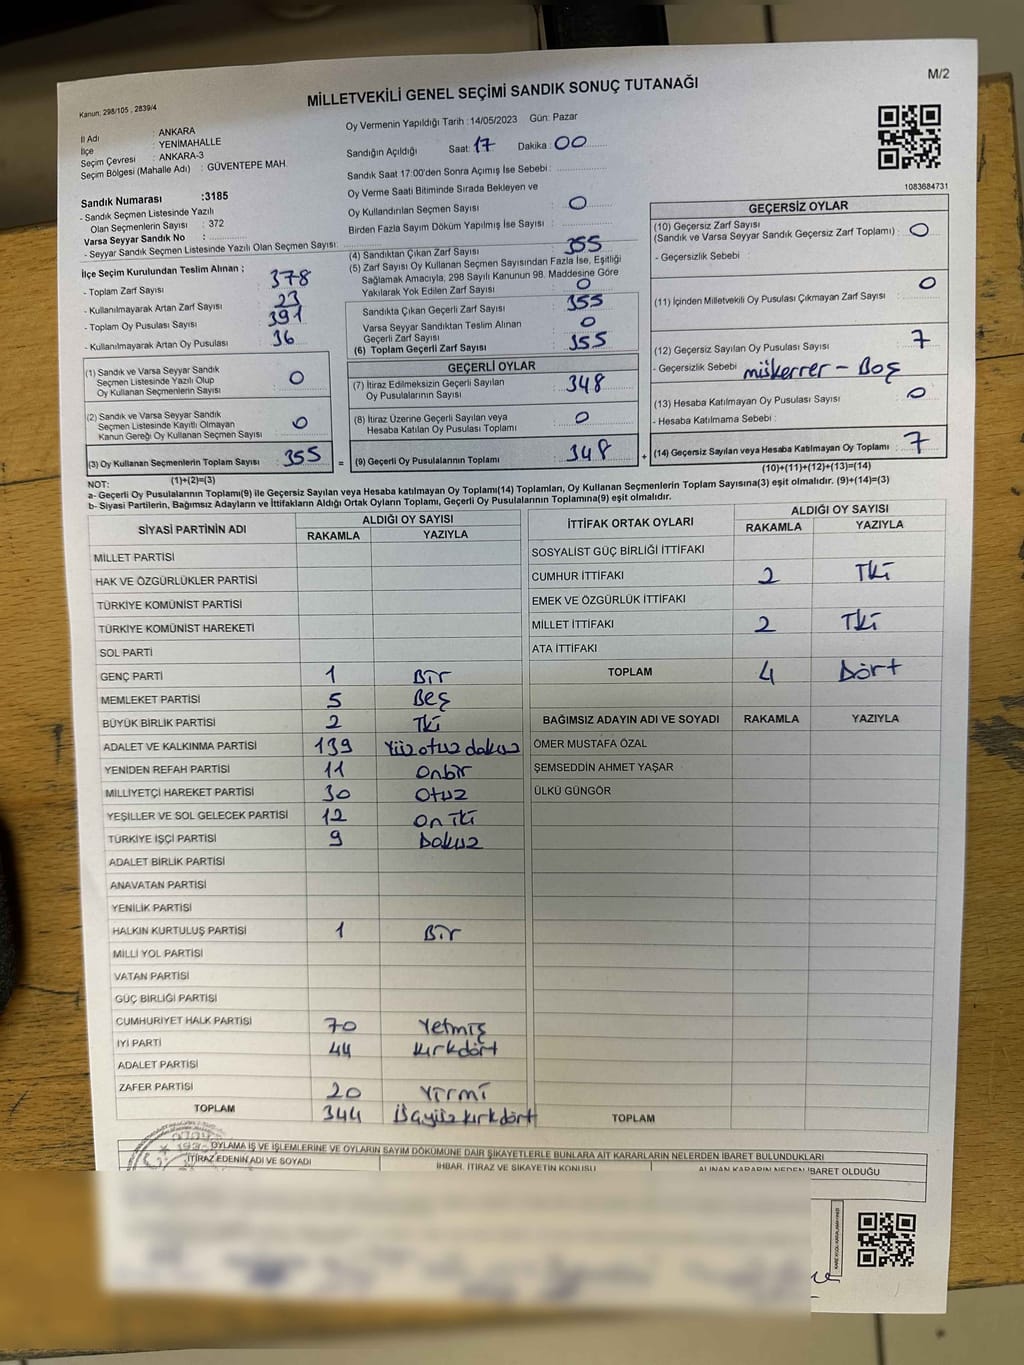 M/2
Kanun: 298/105 , 2839/4
MİLLETVEKİLİ GENEL SEÇİMİ SANDIK SONUÇ TUTANAĞI
İl Adı : ANKARA
İlçe : YENİMAHALLE
Seçim Çevresi : ANKARA-3
Seçim Bölgesi (Mahalle Adı) : GÜVENTEPE MAH.
Sandık Numarası :3185
- Sandık Seçmen Listesinde Yazılı
Olan Seçmenlerin Sayısı : 372
Varsa Seyyar Sandık No :
- Seyyar Sandık Seçmen Listesinde Yazılı Olan Seçmen Sayısı:
İlçe Seçim Kurulundan Teslim Alınan ;
- Toplam Zarf Sayısı : 378
- Kullanılmayarak Artan Zarf Sayısı : 23
- Toplam Oy Pusulası Sayısı : 391
- Kullanılmayarak Artan Oy Pusulası : 36
(1) Sandık ve Varsa Seyyar Sandık
Seçmen Listesinde Yazılı Olup
Oy Kullanan Seçmenlerin Sayısı : 0
(2) Sandık ve Varsa Seyyar Sandık
Seçmen Listesinde Kayıtlı Olmayan
Kanun Gereği Oy Kullanan Seçmen Sayısı : 0
(3) Oy Kullanan Seçmenlerin Toplam Sayısı : 355
(1)+(2)=(3)
Oy Vermenin Yapıldığı Tarih :14/05/2023 Gün: Pazar
Sandığın Açıldığı Saat: 17 Dakika : 00
Sandık Saat 17:00'den Sonra Açımış İse Sebebi :
Oy Verme Saati Bitiminde Sırada Bekleyen ve
Oy Kullandırılan Seçmen Sayısı : 0
Birden Fazla Sayım Döküm Yapılmış İse Sayısı :
(4) Sandıktan Çıkan Zarf Sayısı : 355
(5) Zarf Sayısı Oy Kullanan Seçmen Sayısından Fazla İse, Eşitliği
Sağlamak Amacıyla, 298 Sayılı Kanunun 98. Maddesine Göre
Yakılarak Yok Edilen Zarf Sayısı : 0
Sandıkta Çıkan Geçerli Zarf Sayısı : 355
Varsa Seyyar Sandıktan Teslim Alınan
Geçerli Zarf Sayısı : 0
(6) Toplam Geçerli Zarf Sayısı : 355
GEÇERLİ OYLAR
(7) İtiraz Edilmeksizin Geçerli Sayılan
Oy Pusulalarının Sayısı : 348
(8) İtiraz Üzerine Geçerli Sayılan veya
Hesaba Katılan Oy Pusulası Toplamı : 0
= (9) Geçerli Oy Pusulalarının Toplamı : 348 +
1083684731
GEÇERSİZ OYLAR
(10) Geçersiz Zarf Sayısı
(Sandık ve Varsa Seyyar Sandık Geçersiz Zarf Toplamı) : 0
- Geçersizlik Sebebi :
(11) İçinden Milletvekili Oy Pusulası Çıkmayan Zarf Sayısı : 0
(12) Geçersiz Sayılan Oy Pusulası Sayısı : 7
- Geçersizlik Sebebi : mükerrer - Boş
(13) Hesaba Katılmayan Oy Pusulası Sayısı : 0
- Hesaba Katılmama Sebebi :
(14) Geçersiz Sayılan veya Hesaba Katılmayan Oy Toplamı : 7
(10)+(11)+(12)+(13)=(14)
NOT:
a- Geçerli Oy Pusulalarının Toplamı(9) ile Geçersiz Sayılan veya Hesaba katılmayan Oy Toplamı(14) Toplamları, Oy Kullanan Seçmenlerin Toplam Sayısına(3) eşit olmalıdır. (9)+(14)=(3)
b- Siyasi Partilerin, Bağımsız Adayların ve İttifakların Aldığı Ortak Oyların Toplamı, Geçerli Oy Pusulalarının Toplamına(9) eşit olmalıdır.
SİYASİ PARTİNİN ADI ALDIĞI OY SAYISI
RAKAMLA YAZIYLA
MİLLET PARTİSİ
HAK VE ÖZGÜRLÜKLER PARTİSİ
TÜRKİYE KOMÜNİST PARTİSİ
TÜRKİYE KOMÜNİST HAREKETİ
SOL PARTİ
GENÇ PARTİ 1 Bir
MEMLEKET PARTİSİ 5 Beş
BÜYÜK BİRLİK PARTİSİ 2 İki
ADALET VE KALKINMA PARTİSİ 139 Yüz otuz dokuz
YENİDEN REFAH PARTİSİ 11 Onbir
MİLLİYETÇİ HAREKET PARTİSİ 30 Otuz
YEŞİLLER VE SOL GELECEK PARTİSİ 12 On iki
TÜRKİYE İŞÇİ PARTİSİ 9 Dokuz
ADALET BİRLİK PARTİSİ
ANAVATAN PARTİSİ
YENİLİK PARTİSİ
HALKIN KURTULUŞ PARTİSİ 1 Bir
MİLLİ YOL PARTİSİ
VATAN PARTİSİ
GÜÇ BİRLİĞİ PARTİSİ
CUMHURİYET HALK PARTİSİ 70 Yetmiş
İYİ PARTİ 44 Kırkdört
ADALET PARTİSİ
ZAFER PARTİSİ 20 Yirmi
TOPLAM 344 Üçyüz kırkdört
İTTİFAK ORTAK OYLARI ALDIĞI OY SAYISI
RAKAMLA YAZIYLA
SOSYALİST GÜÇ BİRLİĞİ İTTİFAKI
CUMHUR İTTİFAKI 2 İki
EMEK VE ÖZGÜRLÜK İTTİFAKI
MİLLET İTTİFAKI 2 İki
ATA İTTİFAKI
TOPLAM 4 Dört
BAĞIMSIZ ADAYIN ADI VE SOYADI RAKAMLA YAZIYLA
ÖMER MUSTAFA ÖZAL
ŞEMSEDDİN AHMET YAŞAR
ÜLKÜ GÜNGÖR
TOPLAM
OYLAMA İŞ VE İŞLEMLERİNE VE OYLARIN SAYIM DÖKÜMÜNE DAİR ŞİKAYETLERLE BUNLARA AİT KARARLARIN NELERDEN İBARET BULUNDUKLARI
İTİRAZ EDENİN ADI VE SOYADI İHBAR, İTİRAZ VE ŞİKAYETİN KONUSU ALINAN KARARIN NEDEN İBARET OLDUĞU